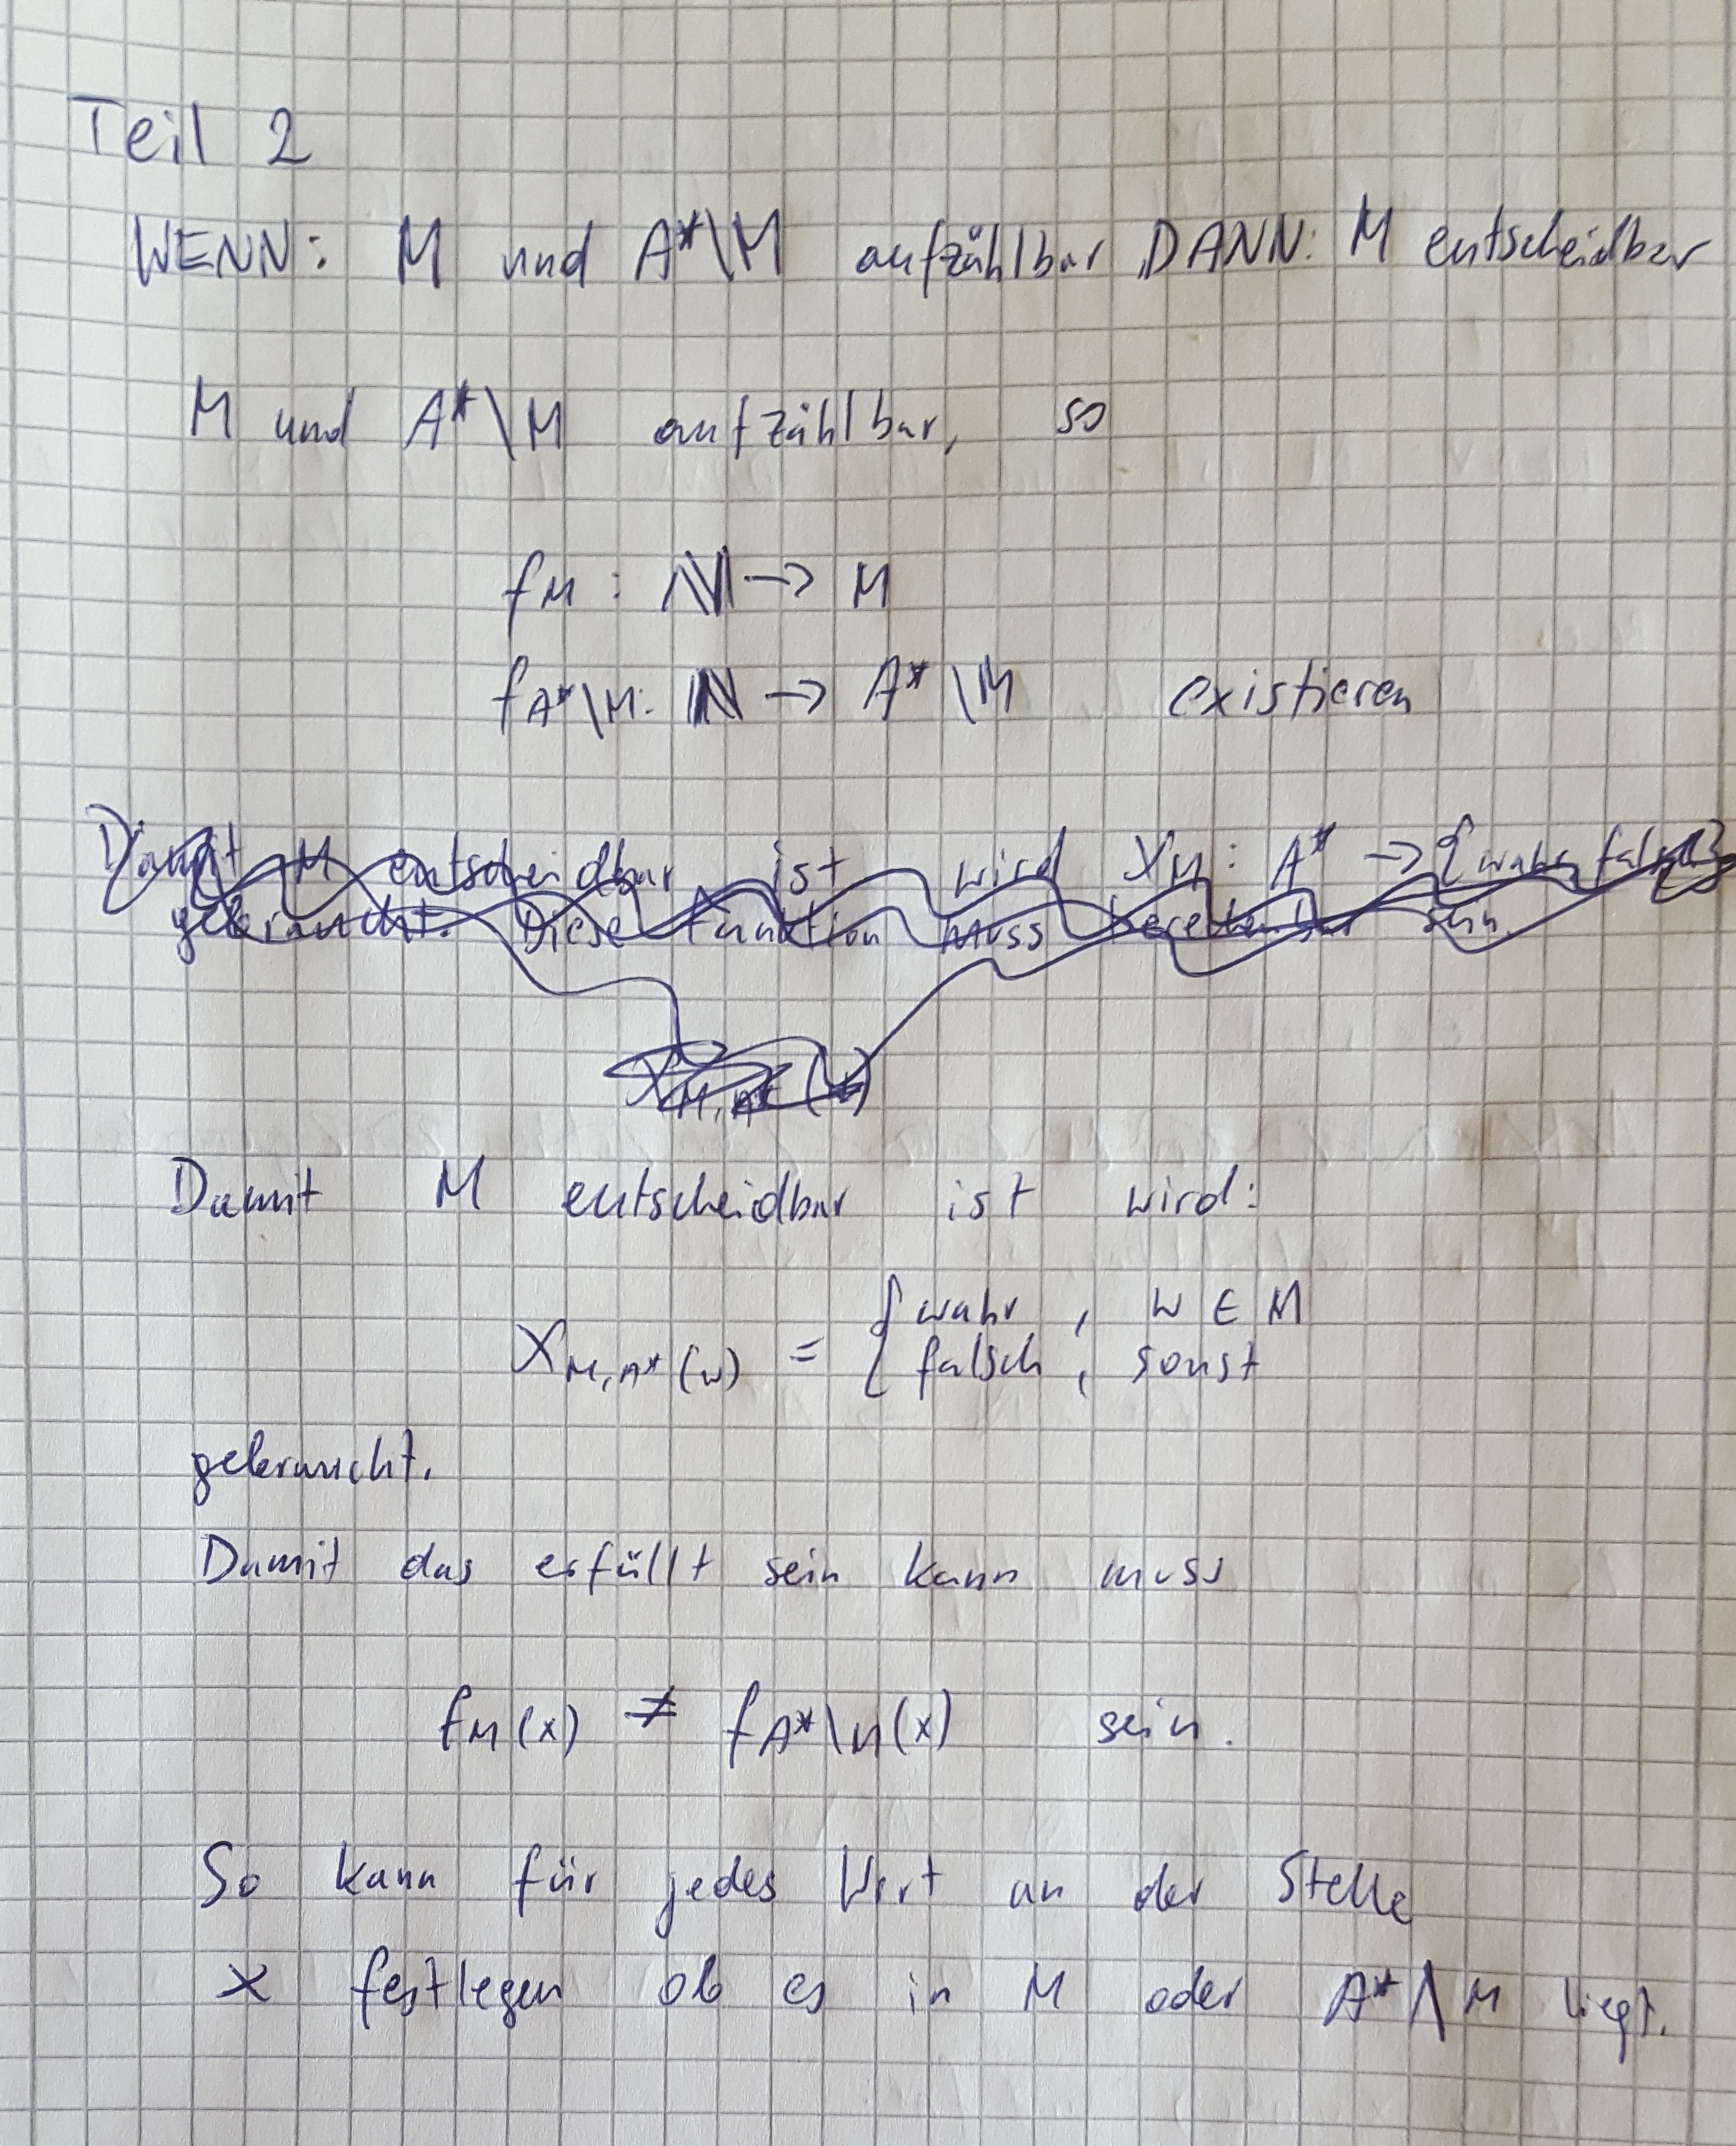 Teil 2
WENN: M und A*\M aufzählbar DANN: M entscheidbar
M und A*\M aufzählbar, so
f_M : ℕ → M
f_A*\M : ℕ → A*\M existieren
Damit M entscheidbar ist wird χ_M : A* → {wahr, falsch}
gebraucht. Diese Funktion muss berechenbar sein.
χ_M,A*
Damit M entscheidbar ist wird:
χ_M,A*(w) = { wahr , w ∈ M
{ falsch , sonst
gebraucht.
Damit das erfüllt sein kann muss
f_M(x) ≠ f_A*\M(x) sein.
So kann für jedes Wort an der Stelle
x festlegen ob es in M oder A*\M liegt.